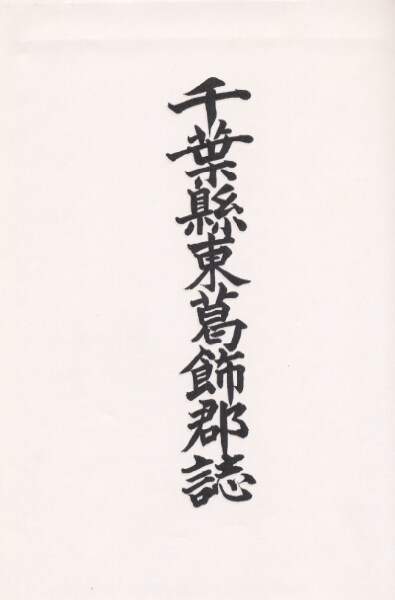 千葉縣東葛飾郡誌